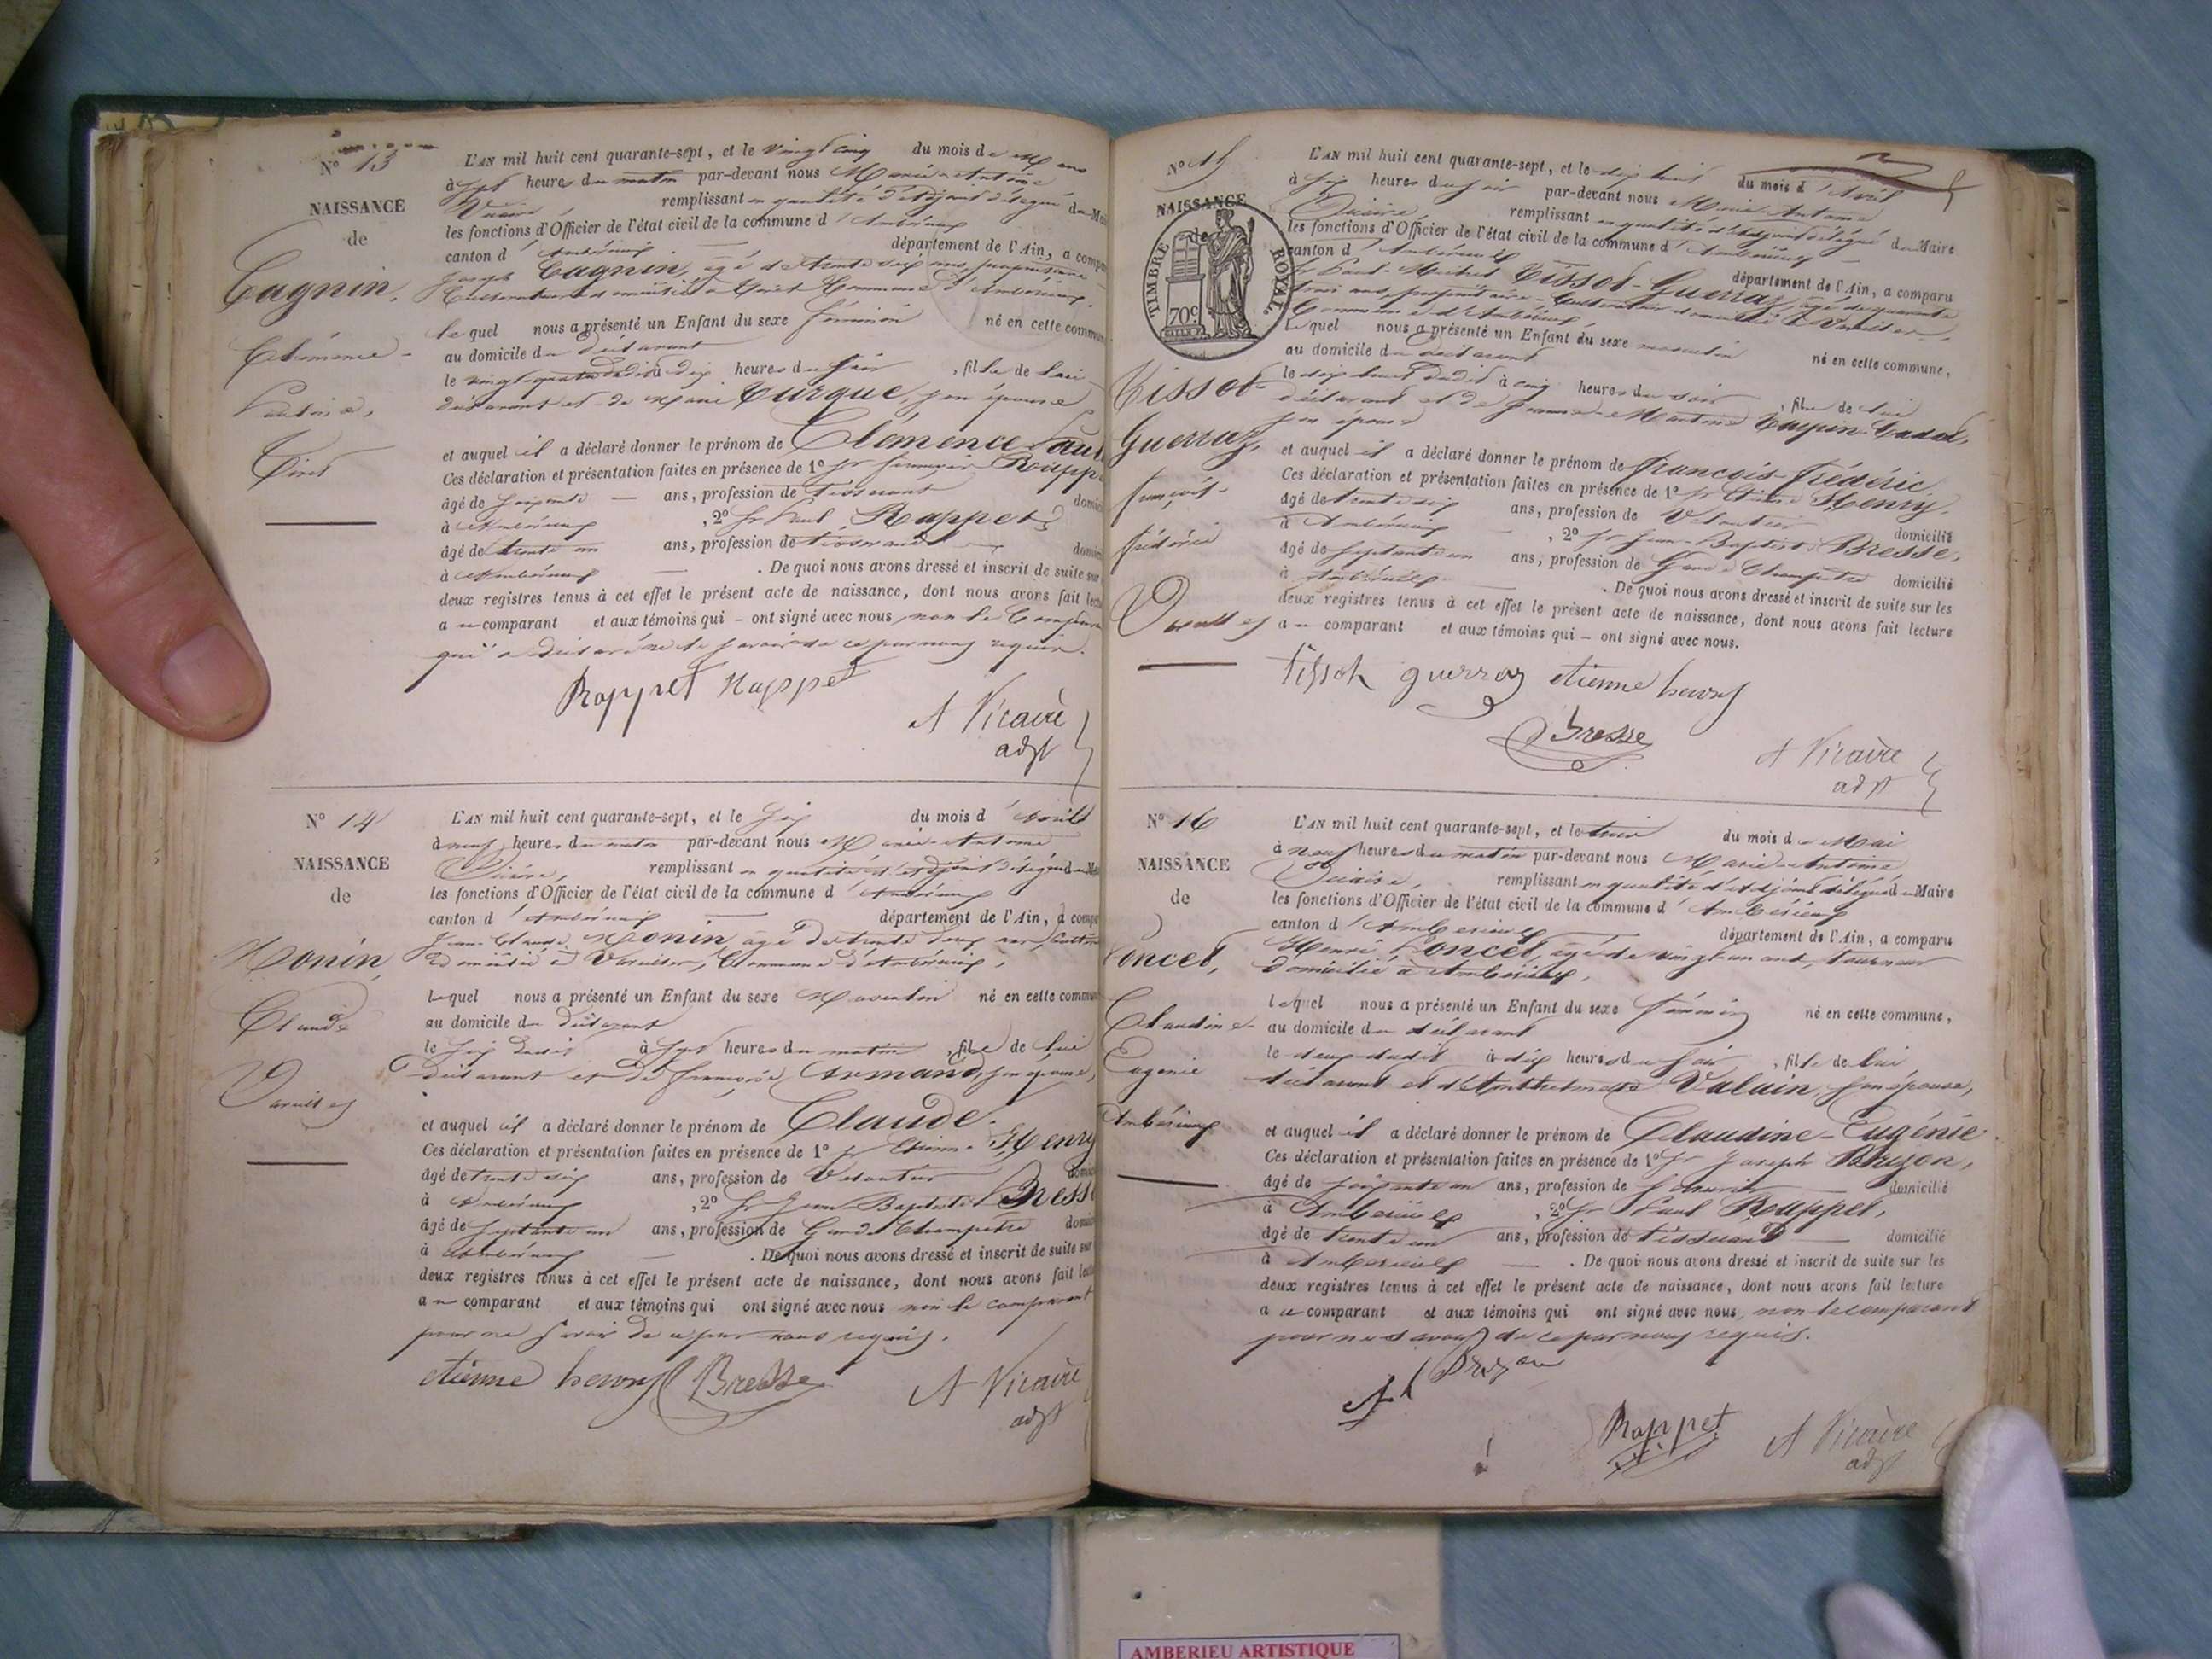 N° 13
NAISSANCE
de
Cagnin,
Clémence
Tiret
L'AN mil huit cent quarante-sept, et le vingt cinq du mois de Mars
à sept heures du matin par-devant nous Marie-Antoine
Vicaire, remplissant en qualité d'adjoint délégué du Maire
les fonctions d'Officier de l'état civil de la commune d'Ambérieux
canton d'Ambérieux département de l'Ain, a comparu
Joseph Cagnin, âgé de trente six ans, propriétaire
Cultivateur domicilié à Tiret Commune d'Ambérieux.
lequel nous a présenté un Enfant du sexe féminin né en cette commune
au domicile du déclarant
le vingt-quatre dudit à dix heures du soir, fille de lui
déclarant et de Marie Curque, son épouse
et auquel il a déclaré donner le prénom de Clémence
Ces déclaration et présentation faites en présence de 1° Sr Rapp
âgé de soixante ans, profession de tisserant
à Ambérieux, 2° Sr Paul Rappet
âgé de trente un ans, profession de tisserand
à Ambérieux. De quoi nous avons dressé et inscrit de suite sur
deux registres tenus à cet effet le présent acte de naissance, dont nous avons fait
au comparant et aux témoins qui ont signé avec nous non le Comparant
qui a déclaré ne le savoir de ce par nous requis.
Rappet Rappet
A Vicaire
adjt
N° 14
NAISSANCE
de
Monin,
Claude
Vareilles
L'AN mil huit cent quarante-sept, et le six du mois d'Avril
à neuf heures du matin par-devant nous Marie-Antoine
Vicaire, remplissant en qualité d'adjoint délégué du
les fonctions d'Officier de l'état civil de la commune d'Ambérieux
canton d'Ambérieux département de l'Ain, a comp
Jean-Claude Monin, âgé de trente deux ans,
domicilié à Vareilles, Commune d'Ambérieux,
lequel nous a présenté un Enfant du sexe Masculin né en cette commun
au domicile du déclarant
le six dudit à sept heures du matin, fils de lui
déclarant et de françoise Armand, son épouse,
et auquel il a déclaré donner le prénom de Claude.
Ces déclaration et présentation faites en présence de 1° Sr Etienne Henry
âgé de trente six ans, profession de Voiturier
à Ambérieux, 2° Sr Jean Baptiste Bresse
âgé de septante un ans, profession de Garde Champêtre
à Ambérieux. De quoi nous avons dressé et inscrit de suite sur
deux registres tenus à cet effet le présent acte de naissance, dont nous avons fait
au comparant et aux témoins qui ont signé avec nous non le comparant
pour ne savoir de ce par nous requis.
etienne henry Bresse
A Vicaire
adjt
N° 15
NAISSANCE
de
TIMBRE ROYAL
70c
Tissot
Guerraz,
françois
frédéric
Vareilles
L'AN mil huit cent quarante-sept, et le dix huit du mois d'Avril
à six heures du soir par-devant nous Marie-Antoine
Vicaire, remplissant en qualité d'adjoint délégué du Maire
les fonctions d'Officier de l'état civil de la commune d'Ambérieux
canton d'Ambérieux département de l'Ain, a comparu
Sr Tissot-Guerraz, âgé de quarante
trois ans, propriétaire-Cultivateur domicilié à Vareilles,
Commune d'Ambérieux,
Lequel nous a présenté un Enfant du sexe masculin né en cette commune,
au domicile du déclarant
le dix huit dudit à cinq heures du soir, fils de lui
déclarant et de
son épouse
et auquel il a déclaré donner le prénom de françois-frédéric
Ces déclaration et présentation faites en présence de 1° Sr Etienne Henry.
âgé de trente six ans, profession de Voiturier domicilié
à Ambérieux, 2° Sr Jean-Baptiste Bresse,
âgé de septante un ans, profession de Garde Champêtre domicilié
à Ambérieux. De quoi nous avons dressé et inscrit de suite sur les
deux registres tenus à cet effet le présent acte de naissance, dont nous avons fait lecture
au comparant et aux témoins qui – ont signé avec nous.
tissot guerraz etienne henry
Bresse
A Vicaire
adjt
N° 16
NAISSANCE
de
Poncet,
Claudine
Eugénie
Ambérieux
L'AN mil huit cent quarante-sept, et le trois du mois de Mai
à neuf heures du matin par-devant nous Marie-Antoine
Vicaire, remplissant en qualité d'adjoint délégué du Maire
les fonctions d'Officier de l'état civil de la commune d'Ambérieux
canton d'Ambérieux département de l'Ain, a comparu
Henri Poncet, âgé de vingt un ans, tourneur
domicilié à Ambérieux,
lequel nous a présenté un Enfant du sexe féminin né en cette commune,
au domicile du déclarant
le deux dudit à dix heures du soir, fille de lui
déclarant et d'Anthelmette Valain, son épouse,
et auquel il a déclaré donner le prénom de Claudine-Eugénie
Ces déclaration et présentation faites en présence de 1° Sr Joseph Brizon,
âgé de soixante un ans, profession de domicilié
à Ambérieux, 2° Sr Paul Rappet,
âgé de trente un ans, profession de tisserand domicilié
à Ambérieux. De quoi nous avons dressé et inscrit de suite sur les
deux registres tenus à cet effet le présent acte de naissance, dont nous avons fait lecture
au comparant et aux témoins qui ont signé avec nous, non le comparant
pour ne savoir de ce par nous requis.
Brizon
Rappet
A Vicaire
adjt
AMBERIEU ARTISTIQUE